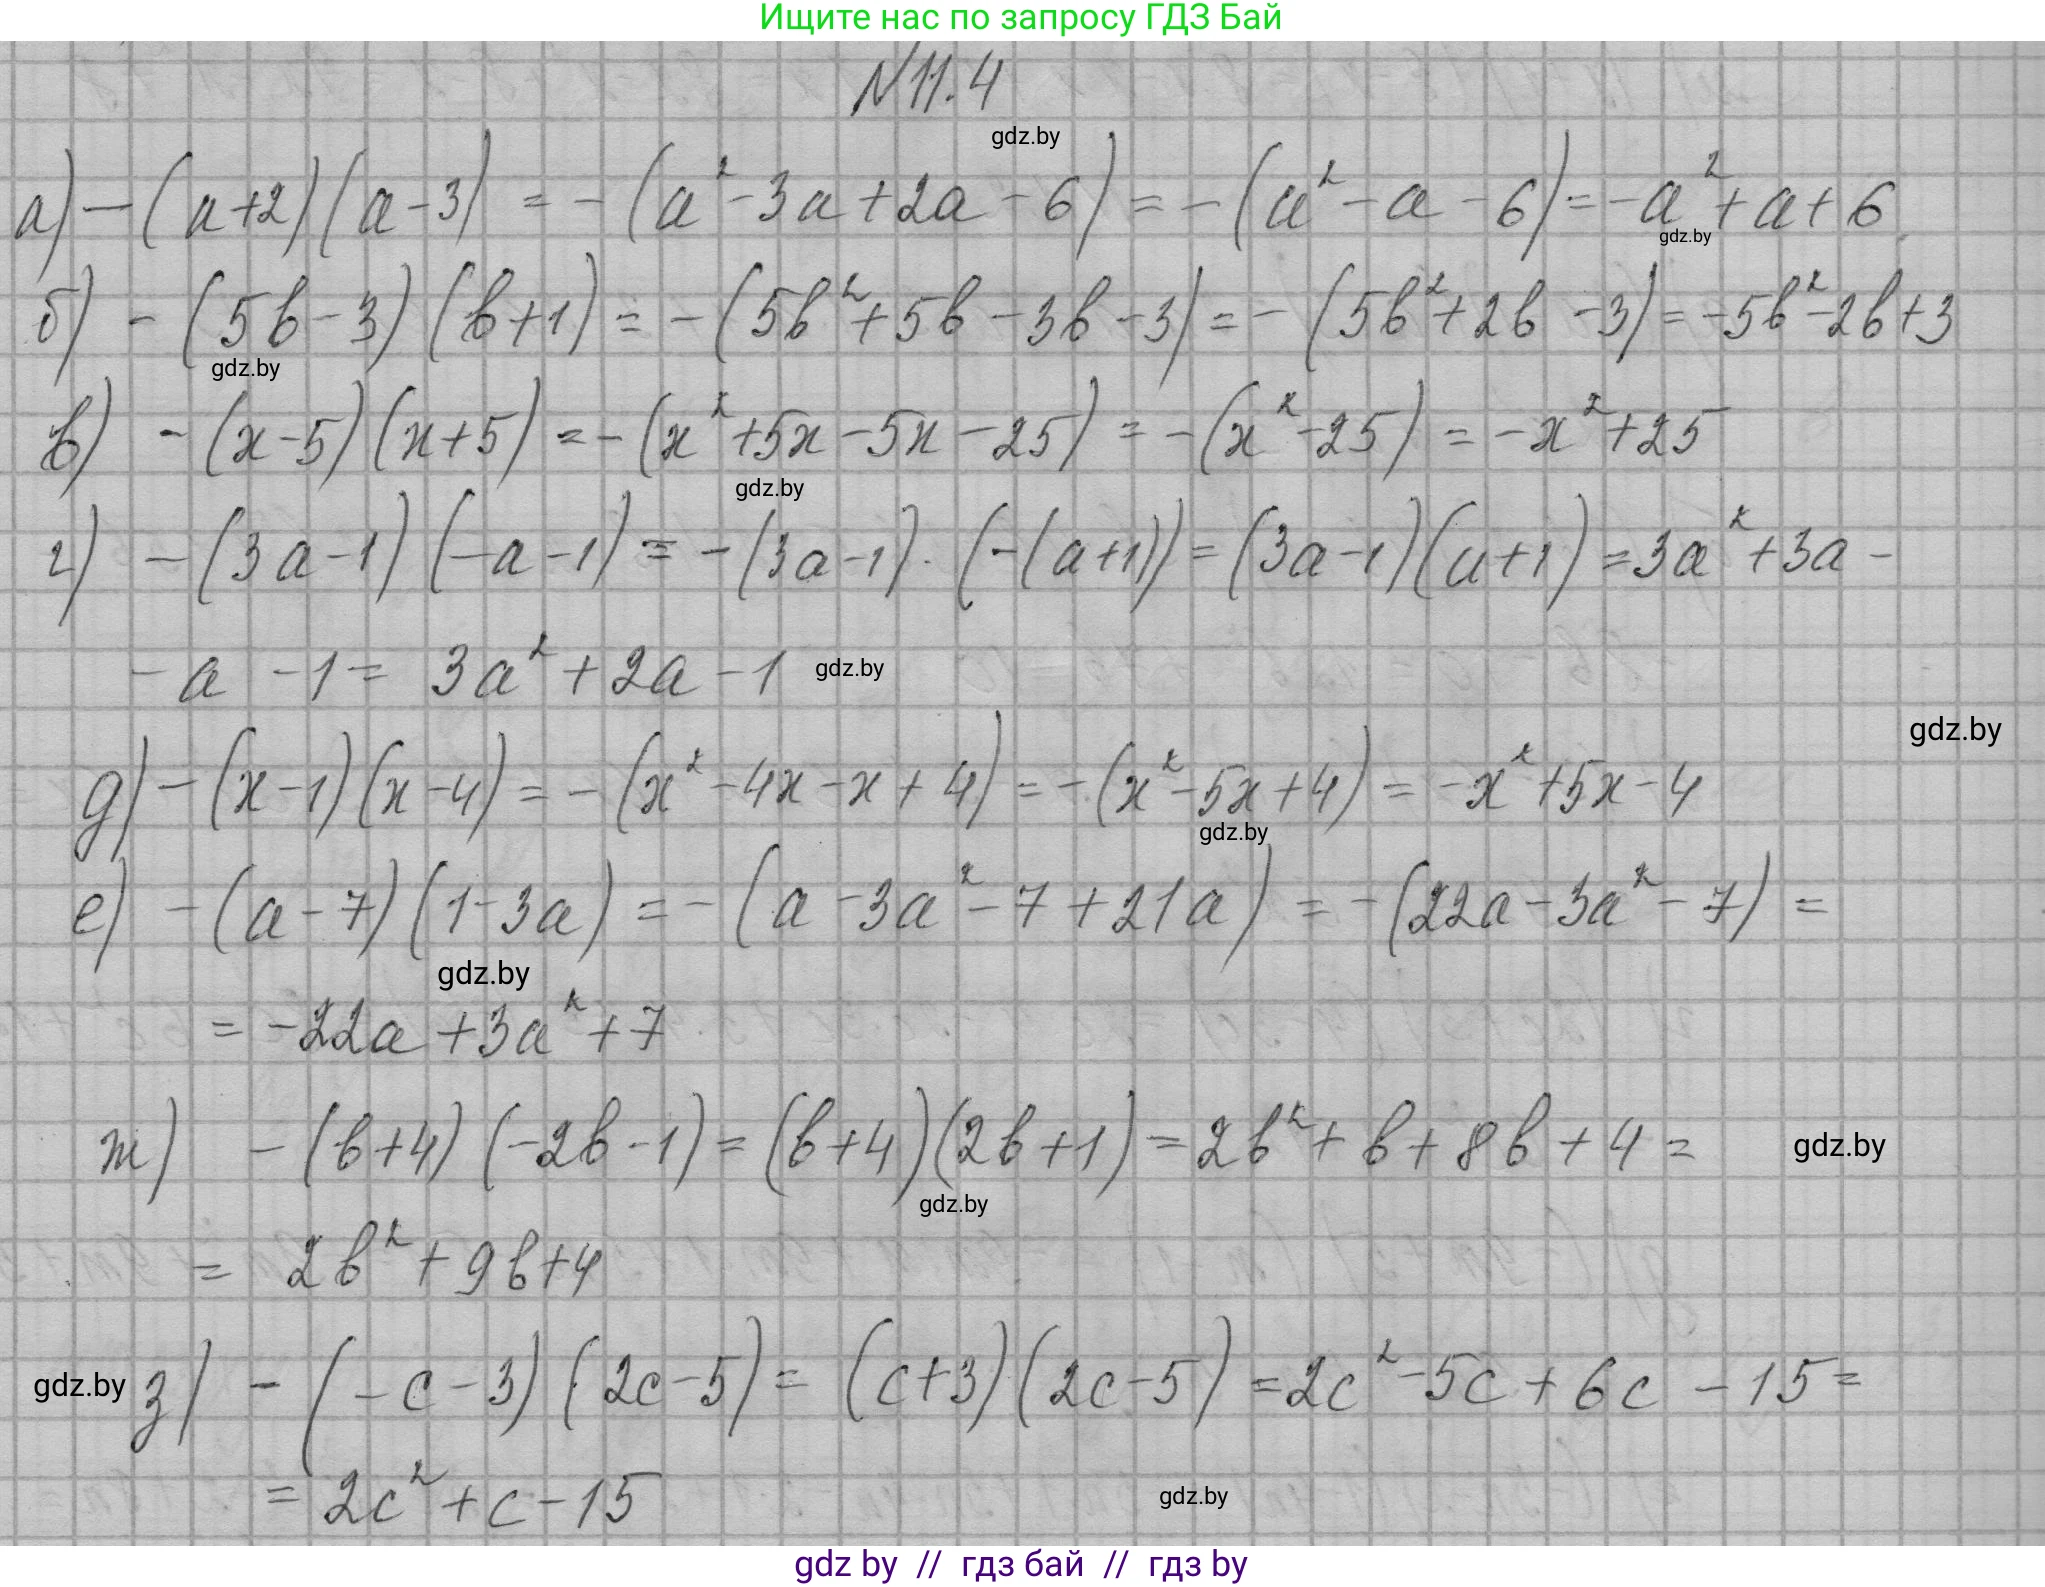 Ищите нас по запросу ГДЗ Бай
№11.4
gdz.by
а) -(a+2)(a-3) = -(a²-3a+2a-6) = -(a²-a-6) = -a²+a+6
gdz.by
б) -(5b-3)(b+1) = -(5b²+5b-3b-3) = -(5b²+2b-3) = -5b²-2b+3
gdz.by
в) -(x-5)(x+5) = -(x²+5x-5x-25) = -(x²-25) = -x²+25
gdz.by
г) -(3a-1)(-a-1) = -(3a-1)·(-(a+1)) = (3a-1)(a+1) = 3a²+3a-
-a-1 = 3a²+2a-1 gdz.by
gdz.by
д) -(x-1)(x-4) = -(x²-4x-x+4) = -(x²-5x+4) = -x²+5x-4
gdz.by
е) -(a-7)(1-3a) = -(a-3a²-7+21a) = -(22a-3a²-7) =
gdz.by
= -22a+3a²+7
ж) -(b+4)(-2b-1) = (b+4)(2b+1) = 2b²+b+8b+4 = gdz.by
gdz.by
= 2b²+9b+4
gdz.by з) -(-c-3)(2c-5) = (c+3)(2c-5) = 2c²-5c+6c-15 =
= 2c²+c-15 gdz.by
gdz by // гдз бай // гдз by